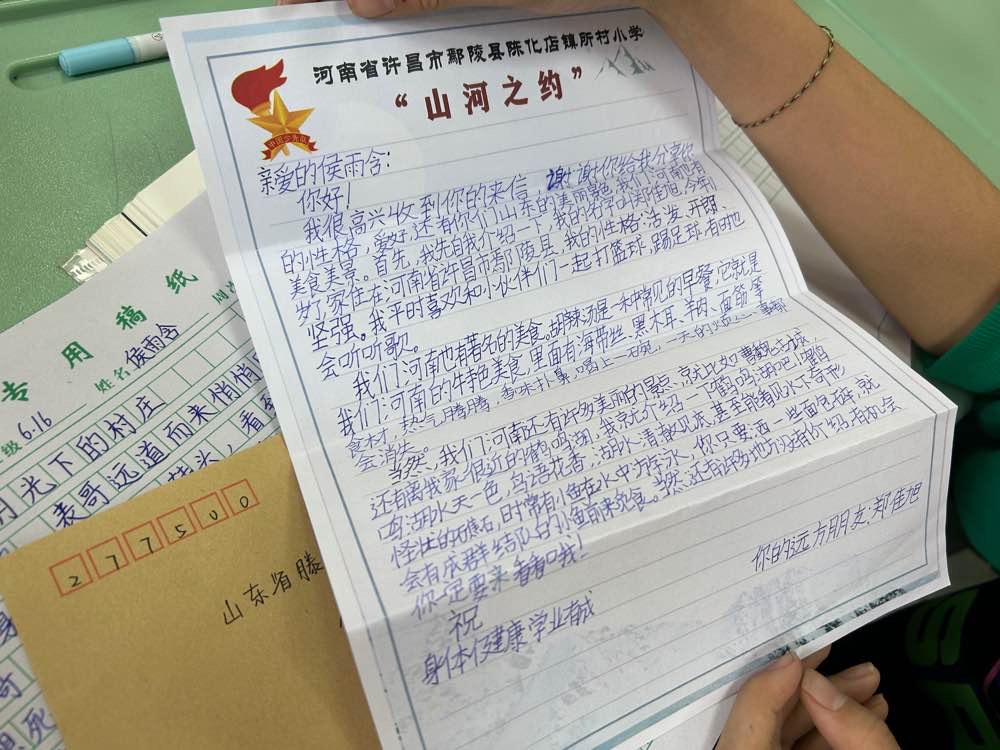 河南省许昌市鄢陵县陈化店镇所村小学
“山河之约”
中国少先队
亲爱的侯雨含:
你好!
我很高兴收到你的来信 谢谢你给我分享你
的性格、爱好,还有你们山东的美丽景色,我们河南也有
美食美景。首先,我先自我介绍一下,我的名字叫郑佳旭,今年
岁了,家住在河南省许昌市鄢陵县,我的性格:活发、开朗、
坚强。我平时喜欢和小伙伴们一起打篮球,踢足球,有时也
会听听歌。
我们河南也有著名的美食。胡辣汤是一种常见的早餐,它就是
我们河南的特色美食,里面有海带丝、黑木耳、羊肉、面筋等
食材,热气腾腾,香味扑鼻,喝上一碗,一天的
会消失。
当然,我们河南还有许多美丽的景京,就比如
还有离我家很近的鹤鸣湖,我就介绍一下鹤鸣湖吧!鹤鸣
湖水天一色,鸟语花香,湖水清澈见底,甚至能看见水下奇形
怪壮的礁石,时常有小鱼在水中方字永,你只要洒一些面包碎,就
会有成群结队的小鱼前来吃食。当然,还有许多地方没有介绍,有机会
你一定要来看看哦!
祝
身体健康 学业有成
你的远方朋友:郑佳旭
专用稿纸
级 6.16 姓名 侯雨含
月光下的村庄
表哥远道而来悄悄
277500
山东省滕